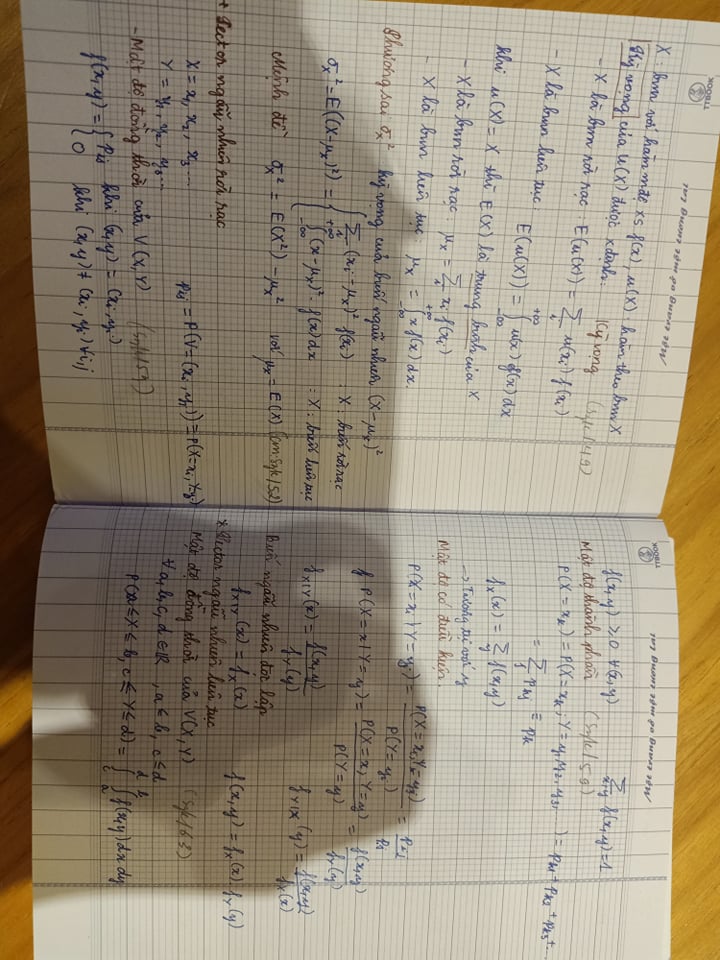 TTBOOK
Một trang vở một tương lai
X : bnn với hàm mđộ xs f(x), u(X) : hàm theo bnn X
Kỳ vọng của u(X) được xđịnh: Kỳ vọng (Sgk/49)
- X là bnn rời rạc : E(u(X)) = ∑_i u(x_i) f(x_i)
- X là bnn liên tục : E(u(X)) = ∫_{-∞}^{+∞} u(x) f(x) dx
khi u(X) = X thì E(X) là trung bình của X
- X là bnn rời rạc : μ_x = ∑_i x_i f(x_i)
- X là bnn liên tục : μ_x = ∫_{-∞}^{+∞} x f(x) dx.
Phương sai σ_x² kỳ vọng của biến ngẫu nhiên (X-μ_x)²
σ_x² = E((X-μ_x)²) = { ∑_i (x_i-μ_x)² f(x_i) : X : biến rời rạc
∫_{-∞}^{+∞} (x-μ_x)². f(x) dx : X : biến liên tục
Mệnh đề σ_x² = E(X²) - μ_x² với μ_x = E(X) (cm: Sgk/52)
+ Vector ngẫu nhiên rời rạc
X = x₁, x₂, x₃ ...
Y = y₁, y₂, y₃ ...
p_ij = P(V = (x_i, y_j)) = P(X=x_i, Y=y_j)
- Mật độ đồng thời của V(X,Y) (Sgk/59)
f(x,y) = { p_ij khi (x,y) = (x_i, y_j)
0 khi (x,y) ≠ (x_i, y_j) ∀i,j
TTBOOK
Một trang vở một tương lai
f(x,y) ≥ 0 ∀(x,y) ∑_{x,y} f(x,y) = 1
Mật độ thành phần (Sgk/59)
P(X = x_k) = P(X=x_k ; Y=y₁, y₂, y₃, ...) = p_k1 + p_k2 + p_k3 + ...
= ∑_j p_kj ≡ p_k
f_X(x) = ∑_y f(x,y)
→ Tương tự với y
Mật độ có điều kiện.
P(X = x_i | Y = y_j) = P(X = x_i, Y = y_j) / P(Y = y_j) = p_ij / p_j
f P(X = x | Y = y) = P(X = x, Y = y) / P(Y = y) = f(x,y) / f_Y(y)
f_{X|Y}(x) = f(x,y) / f_Y(y) f_{Y|X}(y) = f(x,y) / f_X(x)
Biến ngẫu nhiên độc lập
f_{X|Y}(x) = f_X(x) f(x,y) = f_X(x). f_Y(y)
* Vector ngẫu nhiên liên tục
Mật độ đồng thời của V(X,Y) (Sgk/63)
∀ a, b, c, d ∈ ℝ , a ≤ b, c ≤ d
P(a ≤ X ≤ b, c ≤ Y ≤ d) = ∫_c^d ∫_a^b f(x,y) dx dy